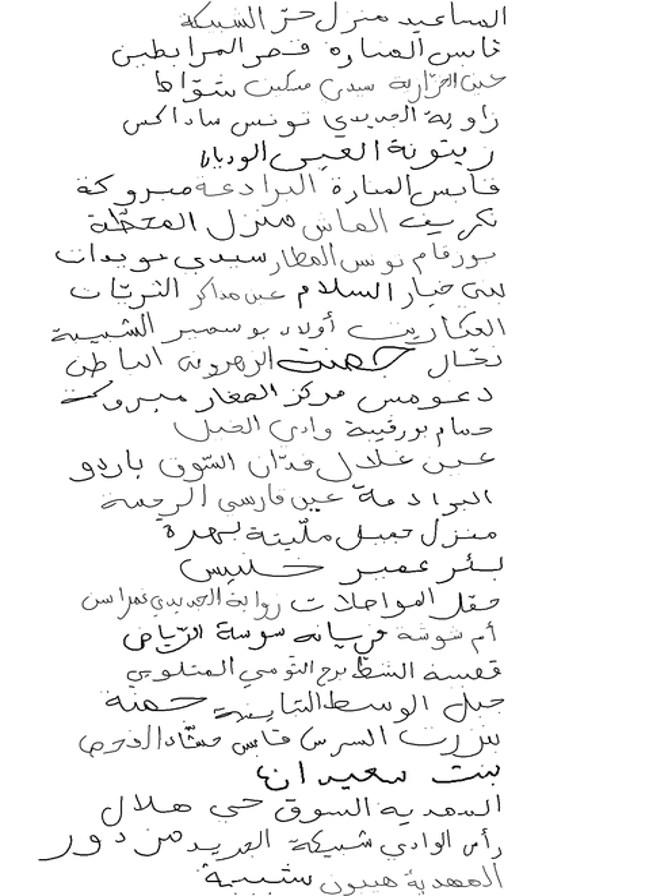 المساعيد منزل حرّ الشبيكة
قابس المنارة قصر المرابطين
سيدي مسكين شوّاط
زاوية الجديدي تونس ساداكس
زيتونة
قابس المنارة البرادعة مبروكة
تكريف الماش منزل المحطّة
بورقام تونس المطار سيدي عويدات
بني خيار السلام عين مذاكر الثريّات
العكاريت أولاد بوسمير الشبيبة
نحّال جمنة الزهروني الباطن
دغومس مركز الصغار مبروكة
حمام بورقيبة وادي الخيل
عين غلال فدّان السّوق باردو
البرادعة عين فارسي الرحمة
منزل جميل ملّيتة بهرة
بئر عمير خنيس
حقل المواصلات زواية الجديدي غمراسن
أم شوشة فريانة سوسة الرّياض
قفصة الشطّ برج التومي المتلوي
جبل الوسط الشابية جمنة
بنزرت السرس قابس حشّاد الفحص
بنت سعيدان
السعدية السوق حي هلال
رأس الوادي شبيكة الجريد من دور
المهدية هيبون شبيبة